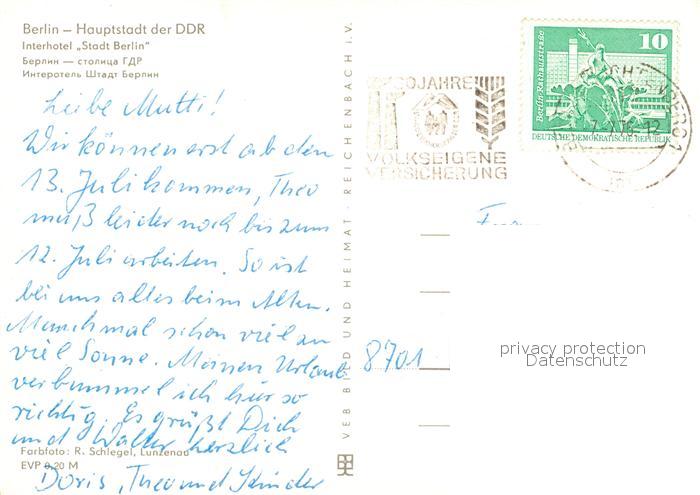 Berlin – Hauptstadt der DDR
Interhotel „Stadt Berlin"
Берлин — столица ГДР
Интеротель Штадт Берлин
Liebe Mutti!
Wir können erst ab den
13. Juli kommen, Theo
muß leider noch bis zum
12. Juli arbeiten. So ist
bei uns alles beim Alten.
Manchmal schon viel zu
viel Sonne. Meinen Urlaub
verbummel ich hier so
richtig. Es grüßt Dich
und Walter herzlich
Doris, Theo und Kinder
Farbfoto: R. Schlegel, Lunzenau
EVP 0,20 M
VEB BILD UND HEIMAT · REICHENBACH i. V.
30 JAHRE
VOLKSEIGENE
VERSICHERUNG
10
Berlin-Rathausstraße
DEUTSCHE DEMOKRATISCHE REPUBLIK
8701
privacy protection
Datenschutz